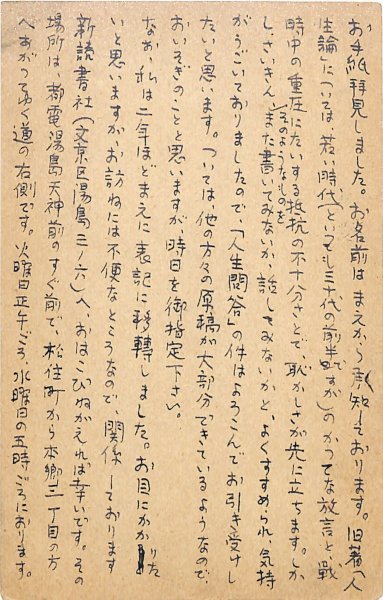 お手紙拝見しました。お名前はまえから承知しております。旧著「人
生論」については若い時代(といっても三十代の前半ですが)のかってな放言と、戦
時中の重圧にたいする抵抗の不十分さとで、恥かしさが先に立ちます。しか
し、さいきん、そのようなものをまた書いてみないか、話してもみないかと、よくすすめられ、気持
がうごいておりましたので、「人生問答」の件はよろこんでお引き受けし
たいと思います。ついては、他の方々の原稿が大部分できているようなので、
おいそぎのことと思いますが、時日を御指定下さい。
なお、私は二年ほどまえに表記に移轉しました。お目にかかりた
いと思いますが、お訪ねには不便なところなので、関係しております
新読書社(文京区湯島三ノ六)へおはこびねがえれば幸いです。その
場所は、都電湯島天神前のすぐ前で、松住町から本郷三丁目の方
へあがってゆく道の右側です。火曜日正午ごろ、水曜日の五時ごろにおります。